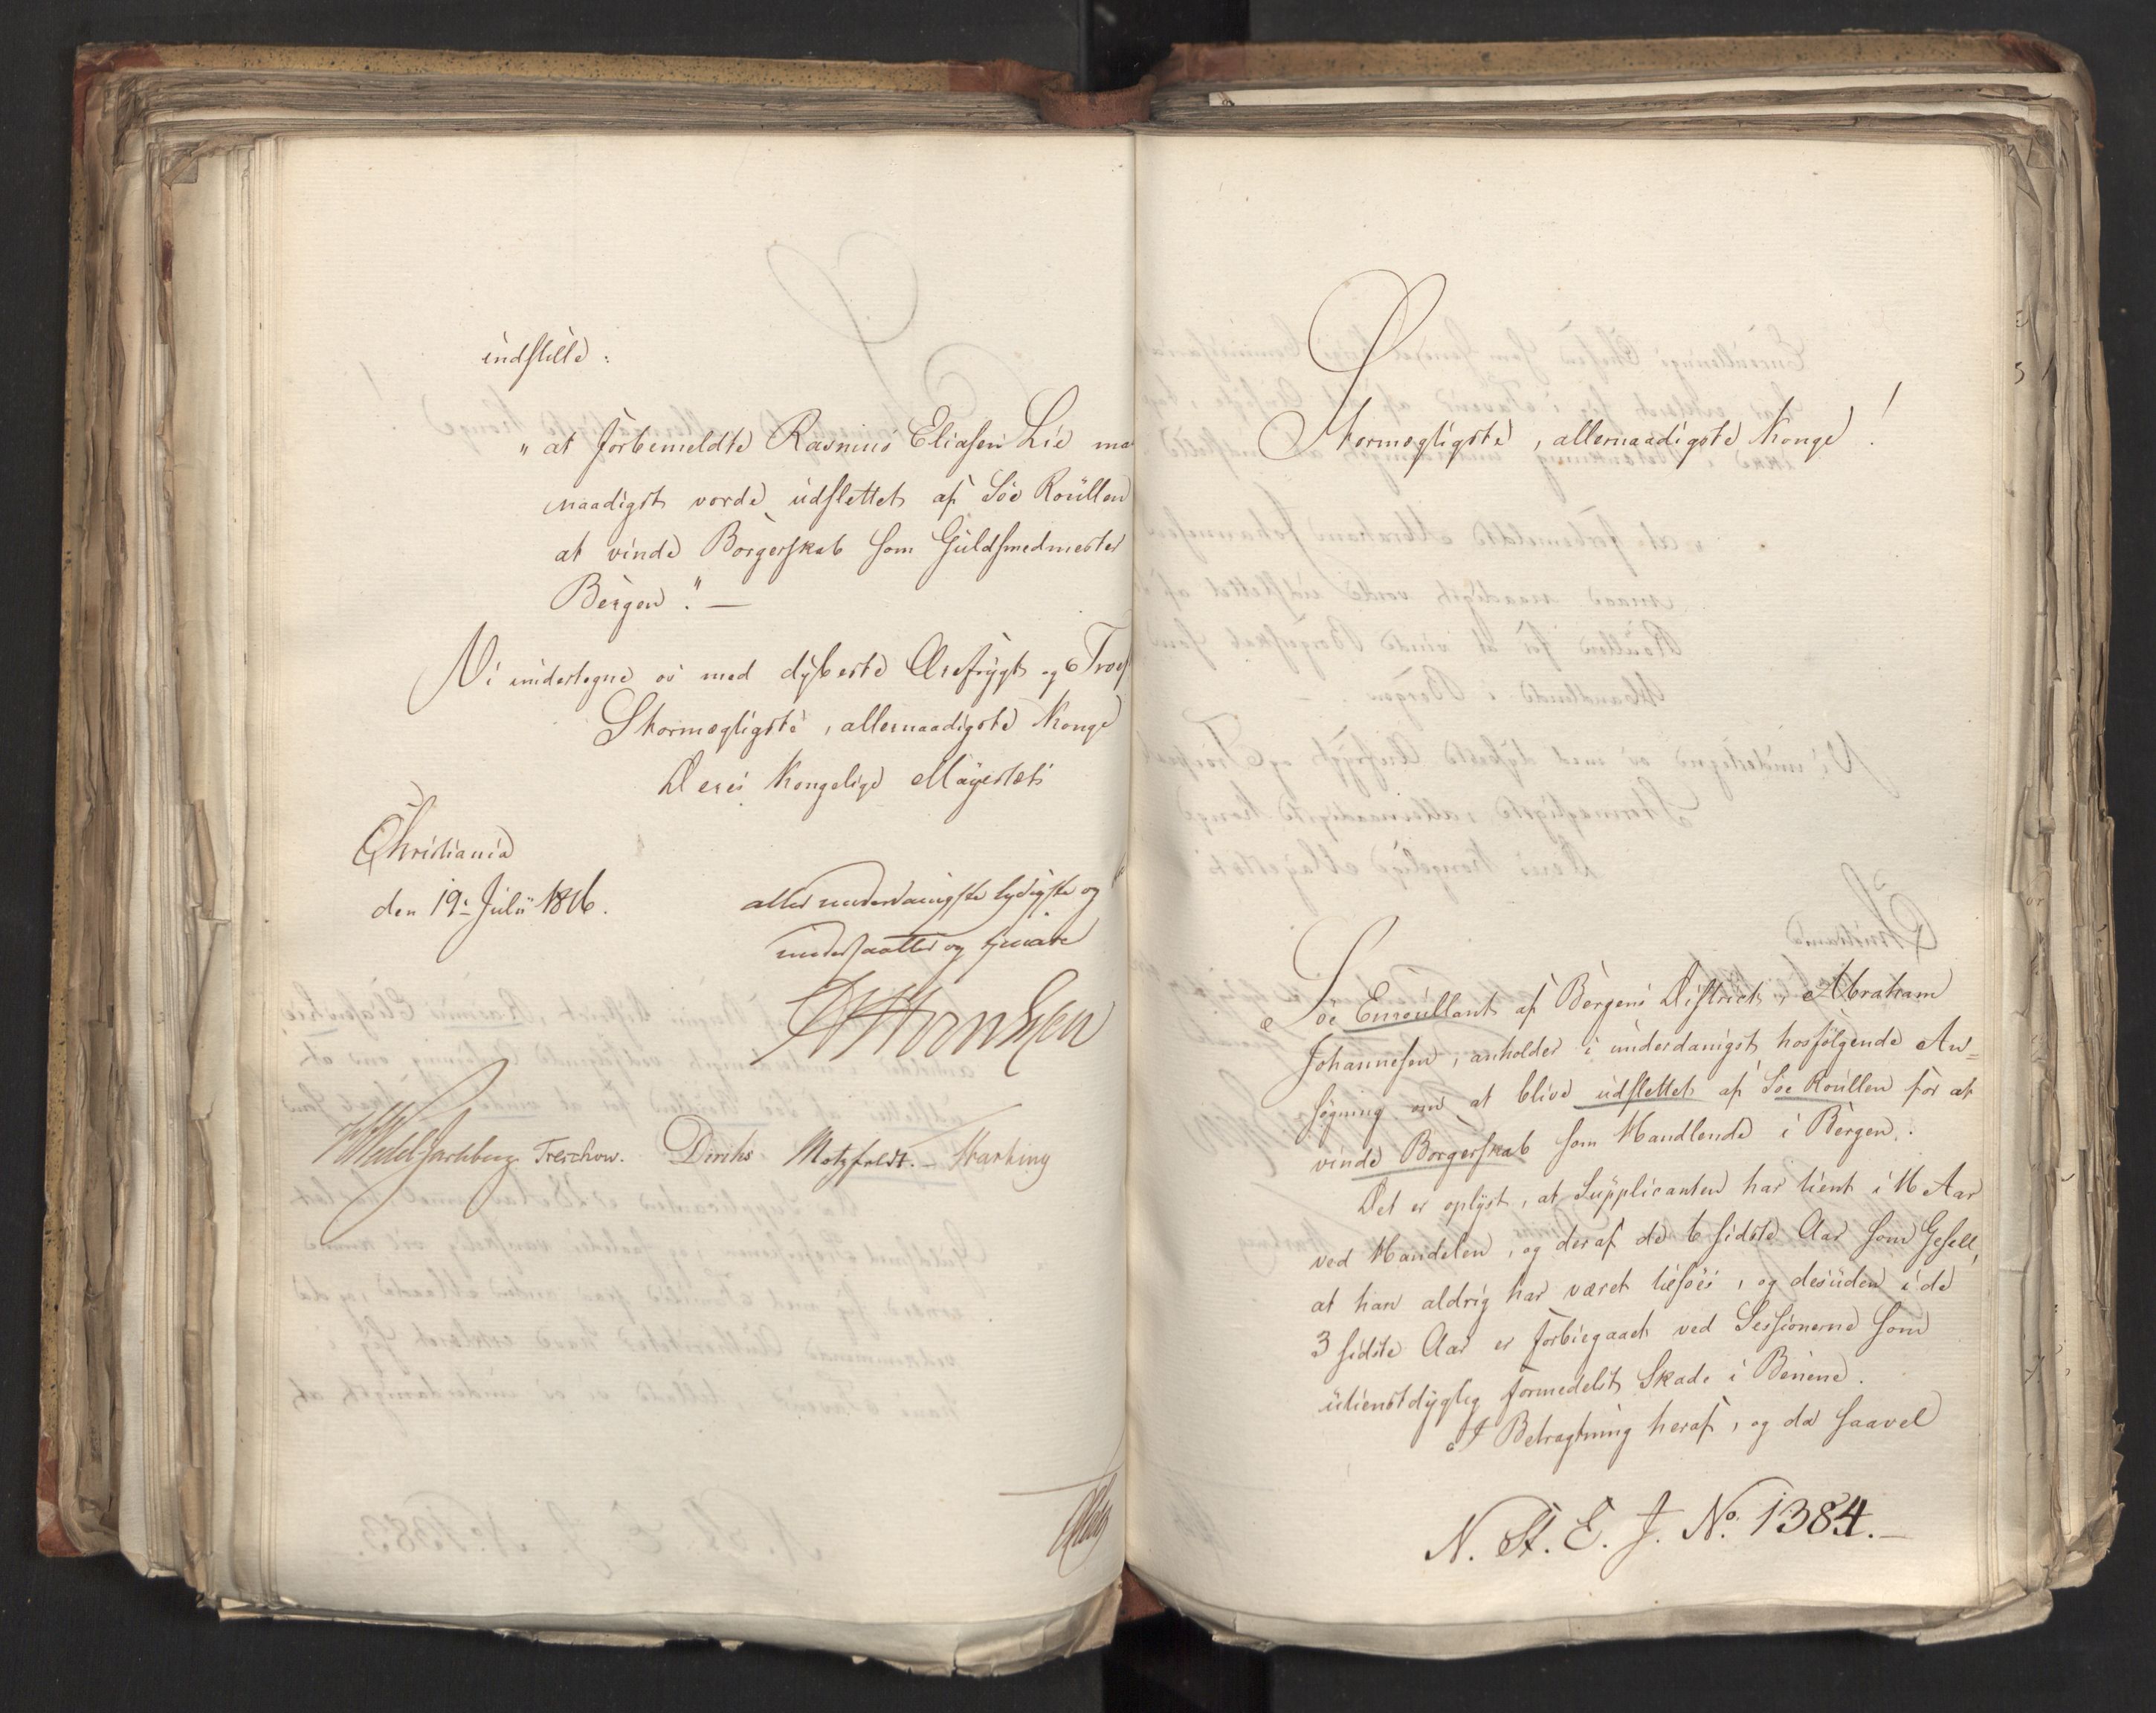 indstille:
„at forbemeldte Rasmus Eliasen Lie maa
naadigst vorde udslettet af Søe Roullen
at vinde Borgerskab som Guldsmedmester
Bergen." —
Vi undertegne os med dybeste Ærefrygt og Troes
Stormægtigste, allernaadigste Konge
Deres Kongelige Mayestæts
Christiania
den 19de Julii 1816.
allerunderdanigste lydigste og
undersaatter og tienere
Wedel Jarlsberg Treschow. Diriks Motzfeldt. Harbing
Stormægtigste, allernaadigste Konge!
Søe Enroullant af Bergens District, Abraham
Johannesen, anholder i underdanigst hosfølgende An=
søgning om at blive udslettet af Søe Roullen for at
vinde Borgerskab som Handlende i Bergen.
Det er oplyst, at Supplicanten har tient i 16 Aar
ved Handelen, og deraf de 6 sidste Aar som Gesell,
at han aldrig har været tilsøes, og desuden i de
3 sidste Aar er forbiegaaet ved Sessionerne som
utienstdygtig formedelst Skade i Benene.
I Betragtning heraf, og da saavel
N. St. E. J. No. 1384. —